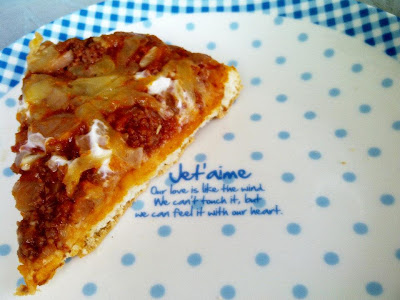 Jet'aime
Our love is like the wind.
We can't touch it, but
we can feel it with our heart.